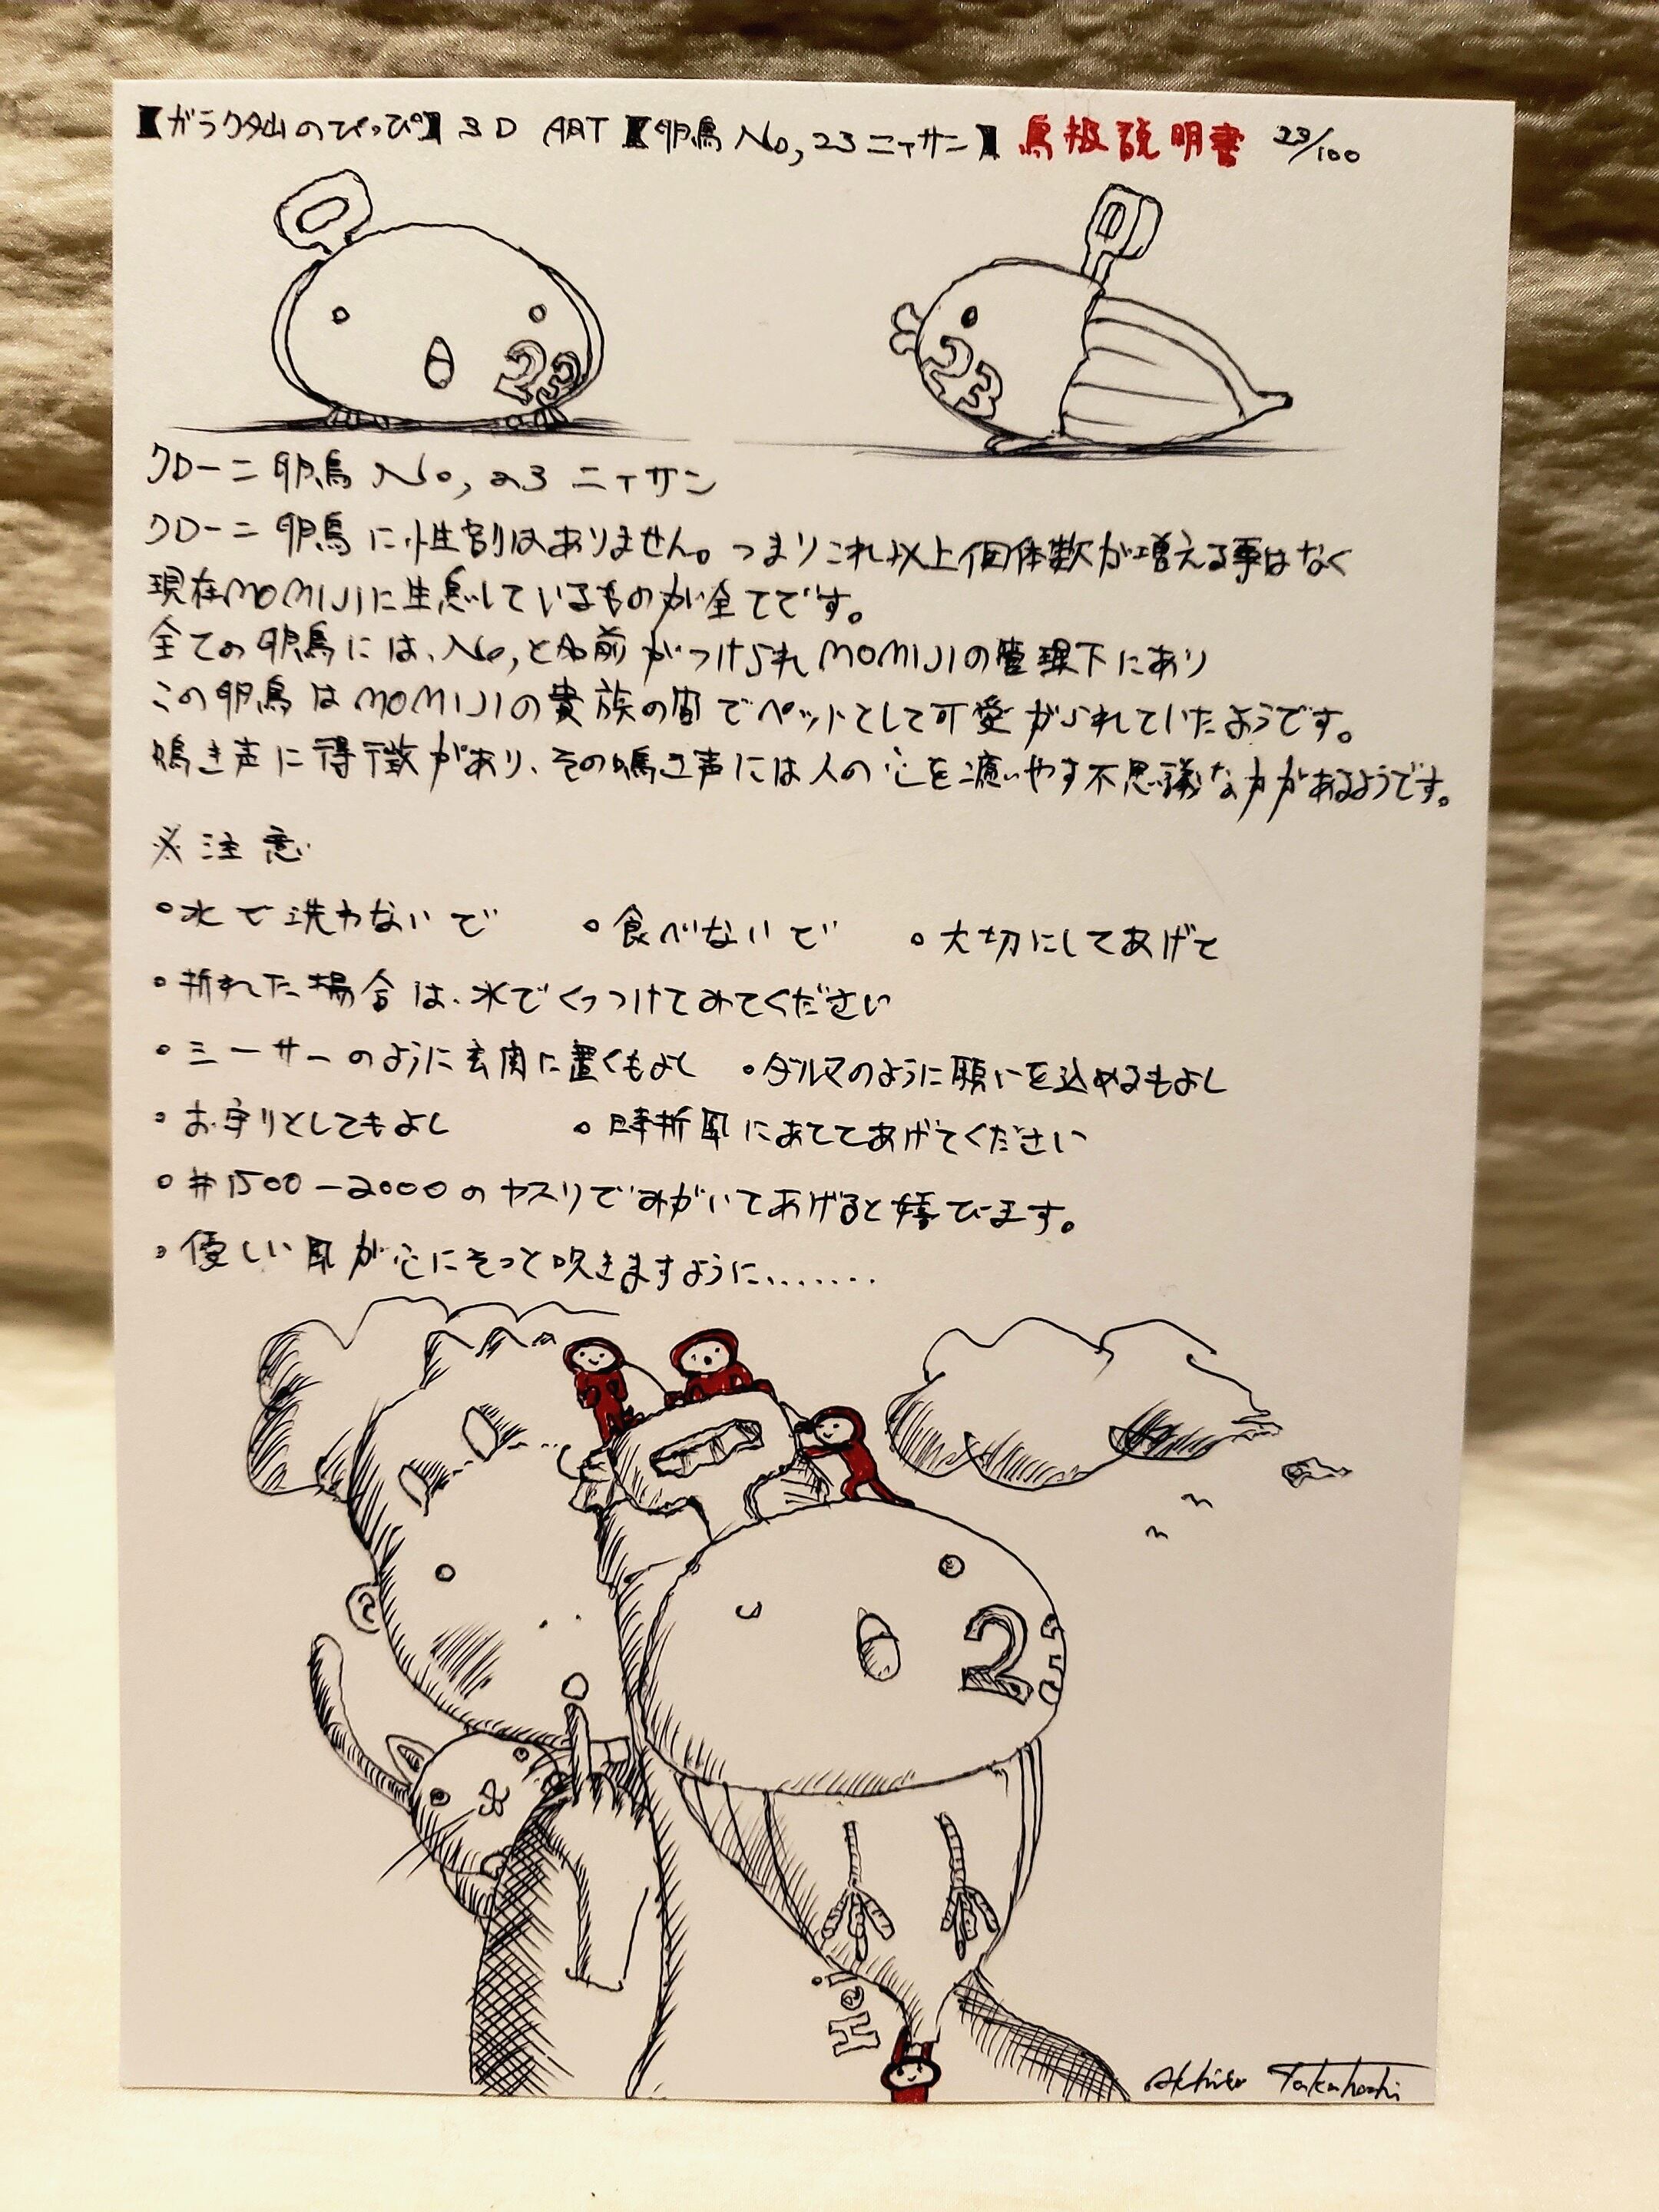 【ガラクタ山のぴっぴ】3D ART【卵鳥 No,23 ニィサン】鳥扱説明書 23/100
23
23
クローニ卵鳥 No,23 ニィサン
クローニ卵鳥に性別はありません。つまりこれ以上個体数が増える事はなく
現在MOMIJIに生息しているものが全てです。
全ての卵鳥には、No,と名前がつけられMOMIJIの管理下にあり
この卵鳥はMOMIJIの貴族の間でペットとして可愛がられていたようです。
鳴き声に特徴があり、その鳴き声には人の心を癒やす不思議な力があるようです。
※注意
・水で洗わないで ・食べないで ・大切にしてあげて
・折れた場合は、水でくっつけてみてください
・シーサーのように玄関に置くもよし ・ダルマのように願いを込めるもよし
・お守りとしてもよし ・時折風にあててあげてください
・#1500-2000のヤスリでみがいてあげると喜びます。
・優しい風が心にそっと吹きますように.......
23
Hey!
Akihiro Takahashi